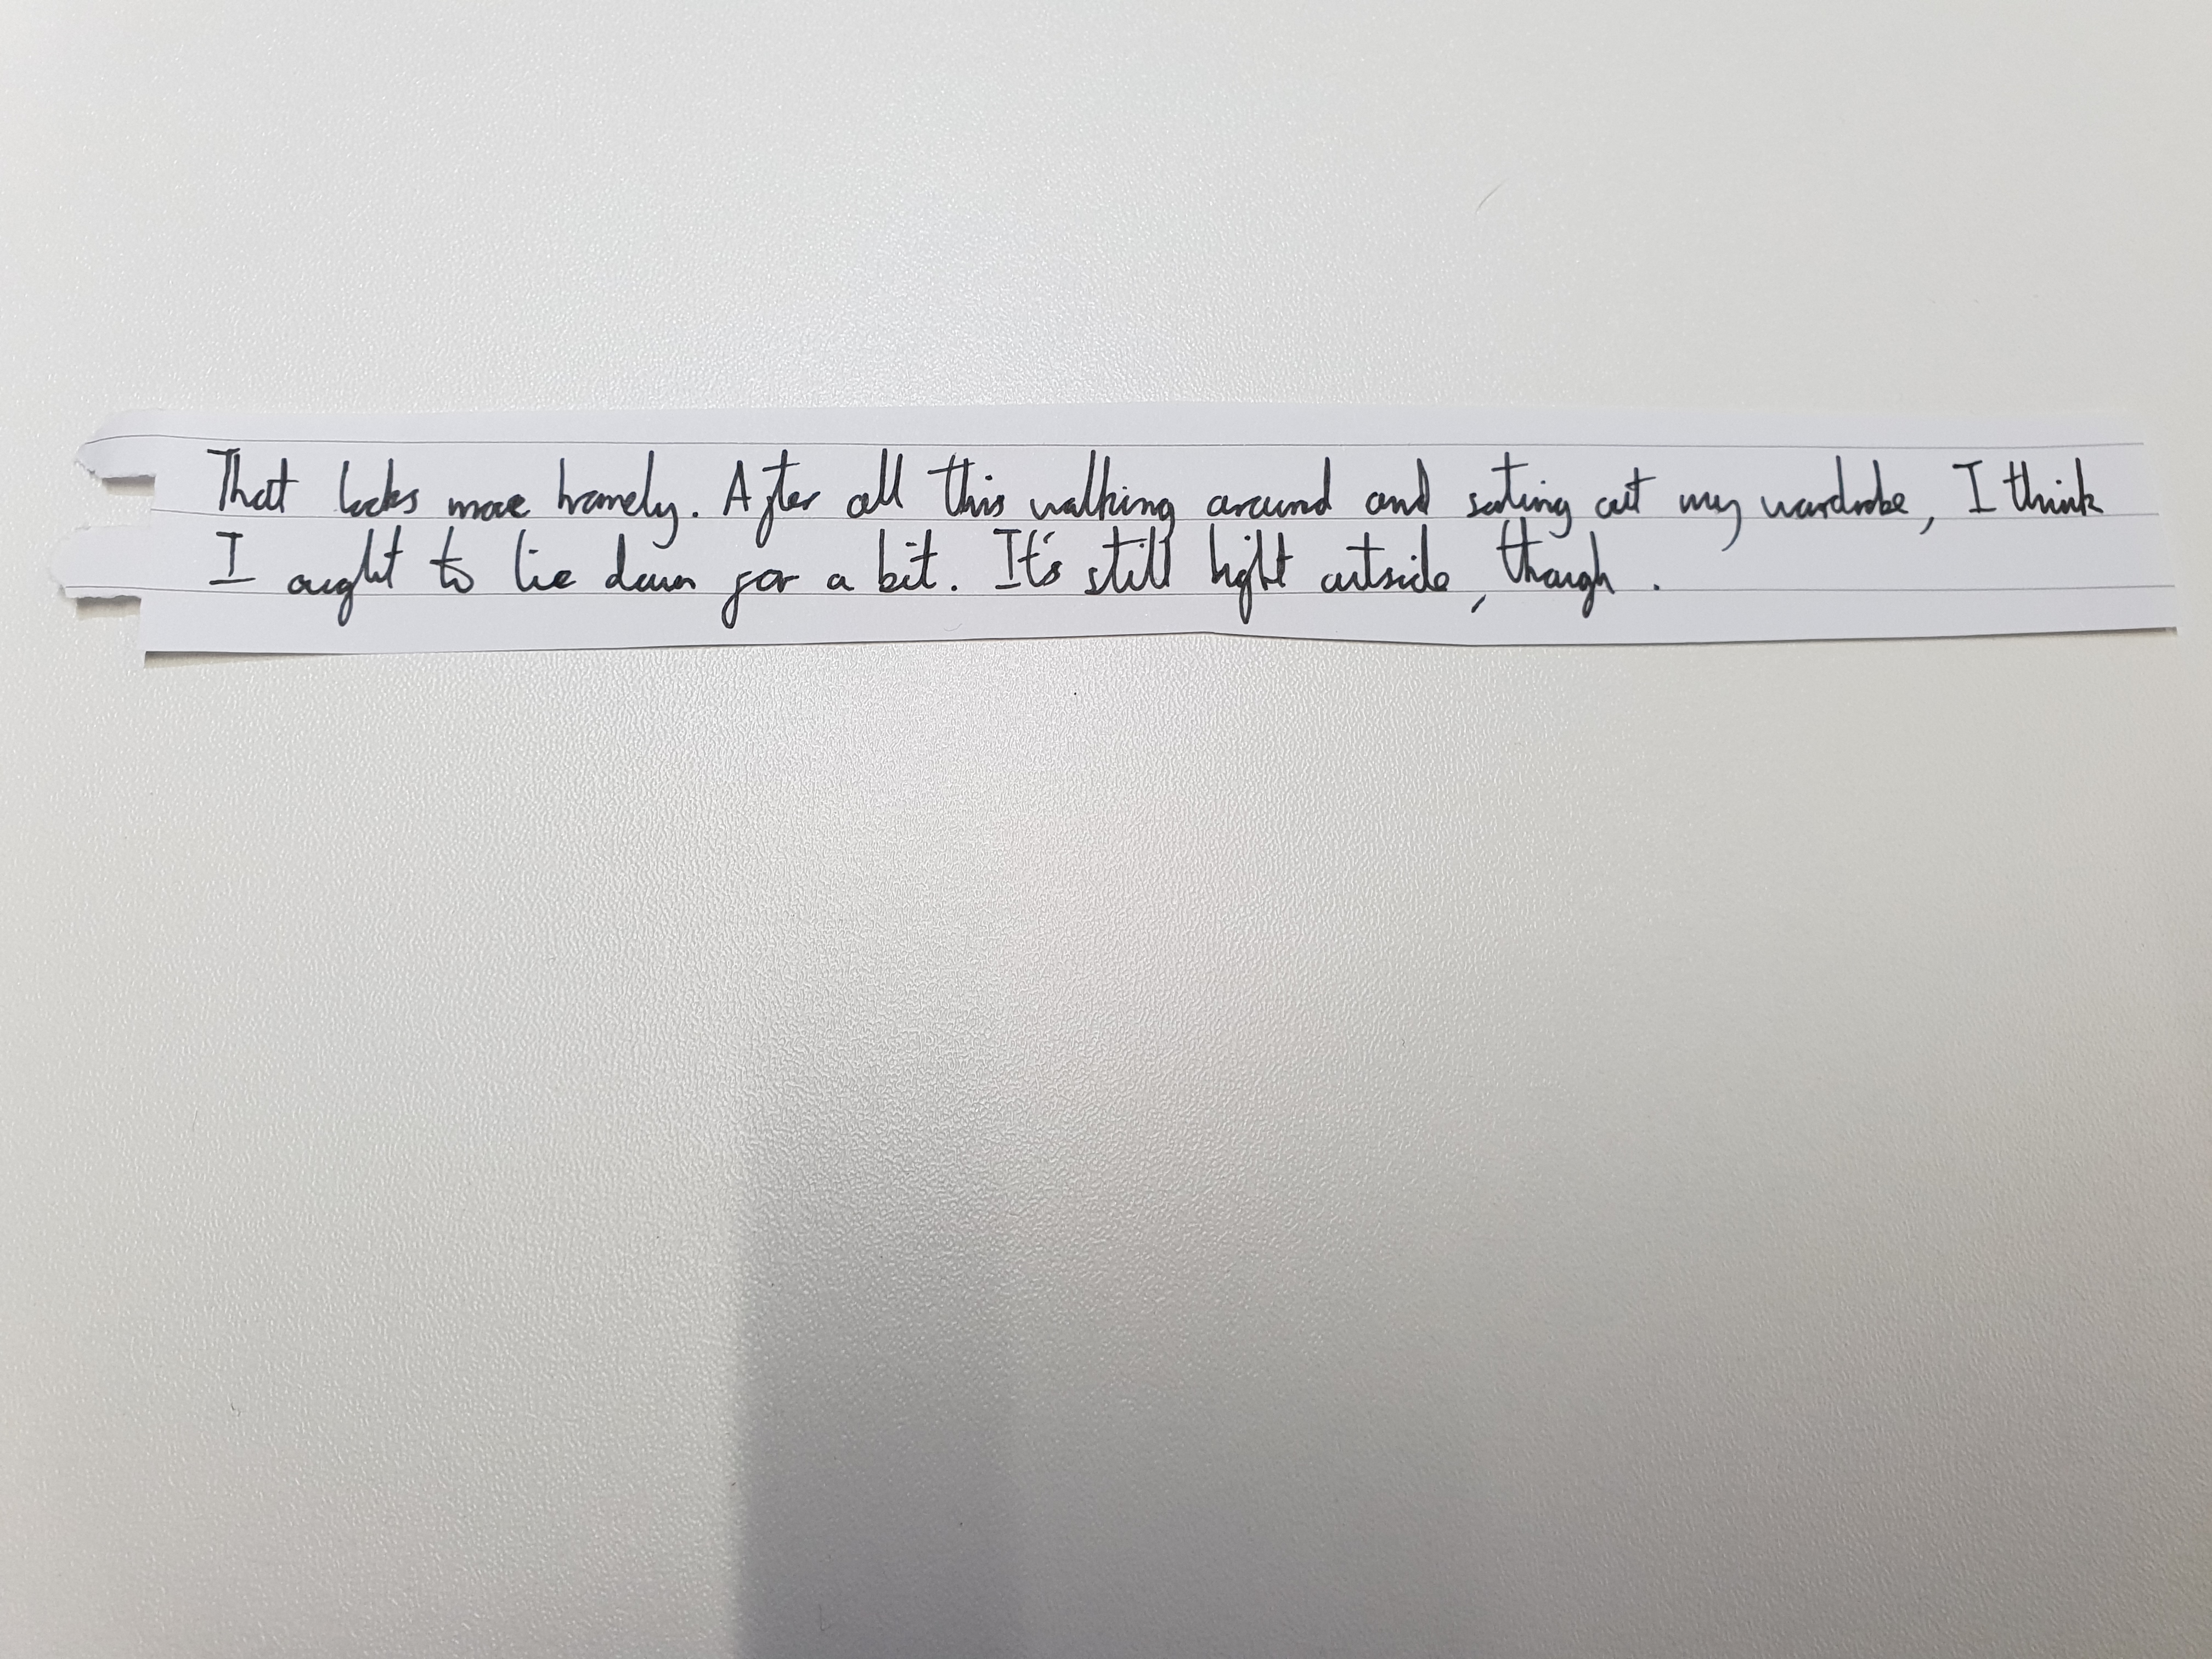 That looks more homely. After all this walking around and sorting out my wardrobe, I think
I ought to lie down for a bit. It's still light outside, though.